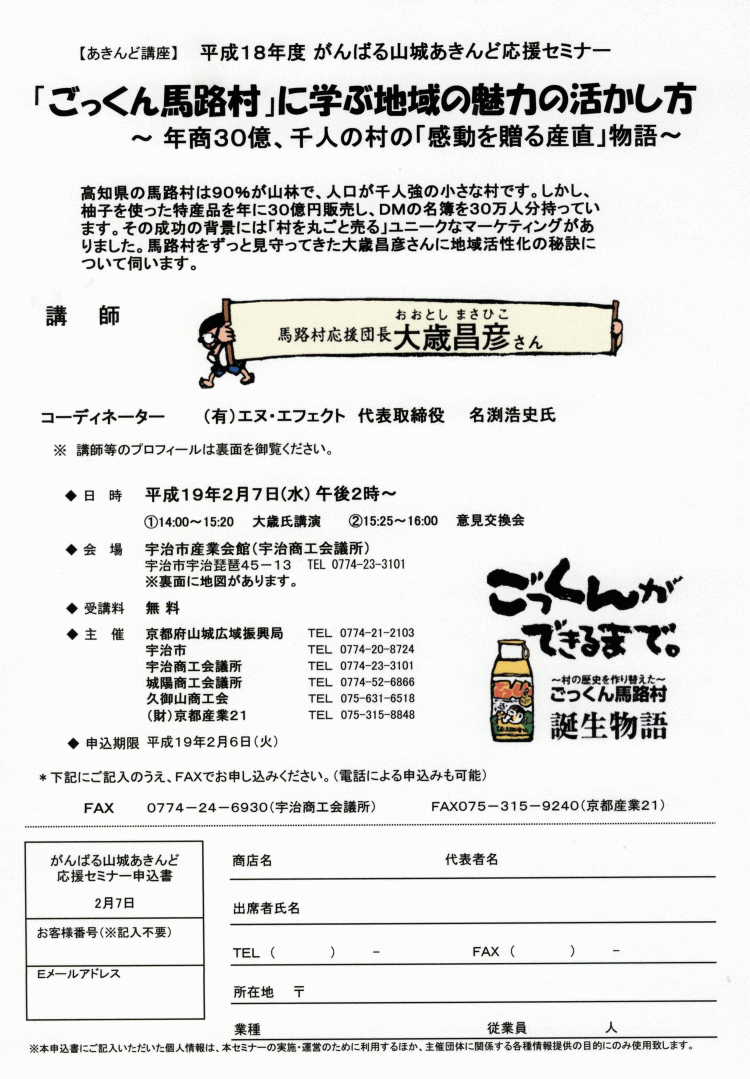 【あきんど講座】 平成18年度 がんばる山城あきんど応援セミナー
「ごっくん馬路村」に学ぶ地域の魅力の活かし方
～ 年商30億、千人の村の「感動を贈る産直」物語～
高知県の馬路村は90%が山林で、人口が千人強の小さな村です。しかし、
柚子を使った特産品を年に30億円販売し、DMの名簿を30万人分持ってい
ます。その成功の背景には「村を丸ごと売る」ユニークなマーケティングがあ
りました。馬路村をずっと見守ってきた大歳昌彦さんに地域活性化の秘訣に
ついて伺います。
講 師
おおとし まさひこ
馬路村応援団長 大歳昌彦さん
コーディネーター (有)エヌ・エフェクト 代表取締役 名渕浩史氏
※ 講師等のプロフィールは裏面を御覧ください。
◆ 日 時 平成19年2月7日(水) 午後2時～
①14:00～15:20 大歳氏講演 ②15:25～16:00 意見交換会
◆ 会 場 宇治市産業会館(宇治商工会議所)
宇治市宇治琵琶45－13 TEL 0774-23-3101
※裏面に地図があります。
◆ 受講料 無 料
◆ 主 催 京都府山城広域振興局 TEL 0774-21-2103
宇治市 TEL 0774-20-8724
宇治商工会議所 TEL 0774-23-3101
城陽商工会議所 TEL 0774-52-6866
久御山商工会 TEL 075-631-6518
(財)京都産業21 TEL 075-315-8848
◆ 申込期限 平成19年2月6日(火)
ごっくんが
できるまで。
～村の歴史を作り替えた～
ごっくん馬路村
誕生物語
*下記にご記入のうえ、FAXでお申し込みください。(電話による申込みも可能)
FAX 0774－24－6930(宇治商工会議所) FAX075－315－9240(京都産業21)
がんばる山城あきんど
応援セミナー申込書
2月7日
お客様番号(※記入不要)
Eメールアドレス
商店名 代表者名
出席者氏名
TEL ( ) － FAX ( ) －
所在地 〒
業種 従業員 人
※本申込書にご記入いただいた個人情報は、本セミナーの実施・運営のために利用するほか、主催団体に関係する各種情報提供の目的にのみ使用致します。